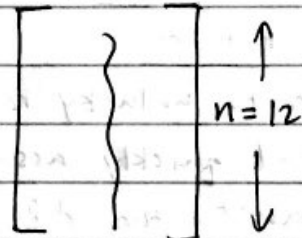 n = 12